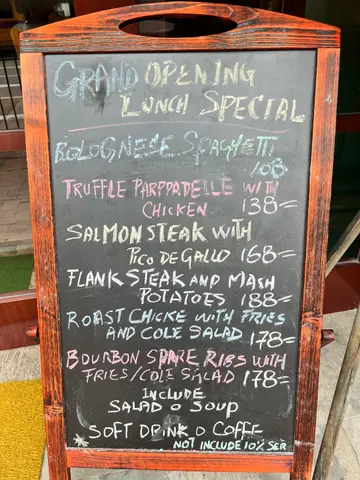 GRAND OPENING
LUNCH SPECIAL
BOLOGNESE SPAGHETTI
108
TRUFFLE PARPPADELLE WITH
CHICKEN 138=
SALMON STEAK WITH
PICO DE GALLO 168=
FLANK STEAK AND MASH
POTATOES 188=
ROAST CHICKE WITH FRIES
AND COLE SALAD 178=
BOURBON SPARE RIBS WITH
FRIES/COLE SALAD 178=
INCLUDE
SALAD O SOUP
SOFT DRINK O COFFE
NOT INCLUDE 10% SER